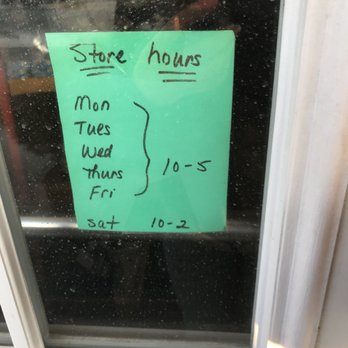 Store hours
Mon
Tues
Wed
Thurs 10-5
Fri
Sat 10-2